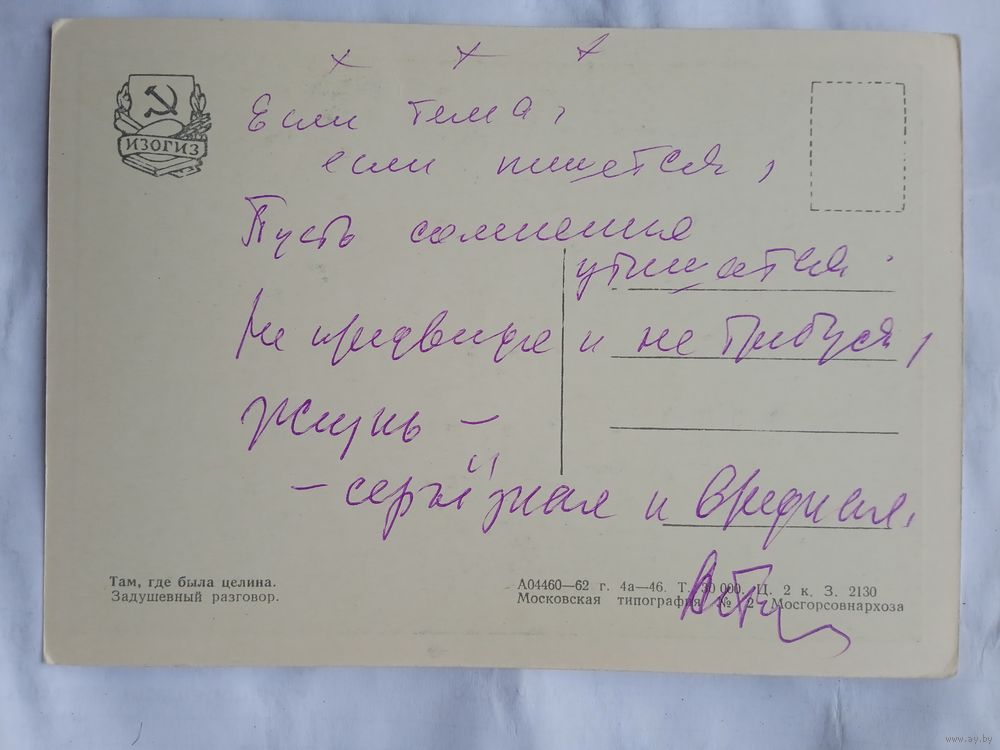 х х х
Если тема,
если пишется,
Пусть сомнения
утишатся.
Не предвидя и не требуя,
жизнь –
– серьёзная и вредная.
ИЗОГИЗ
Там, где была целина.
Задушевный разговор.
А04460—62 г. 4а—46. Т. 30 000. Ц. 2 к. З. 2130
Московская типография № 2 Мосгорсовнархоза
www.ay.by